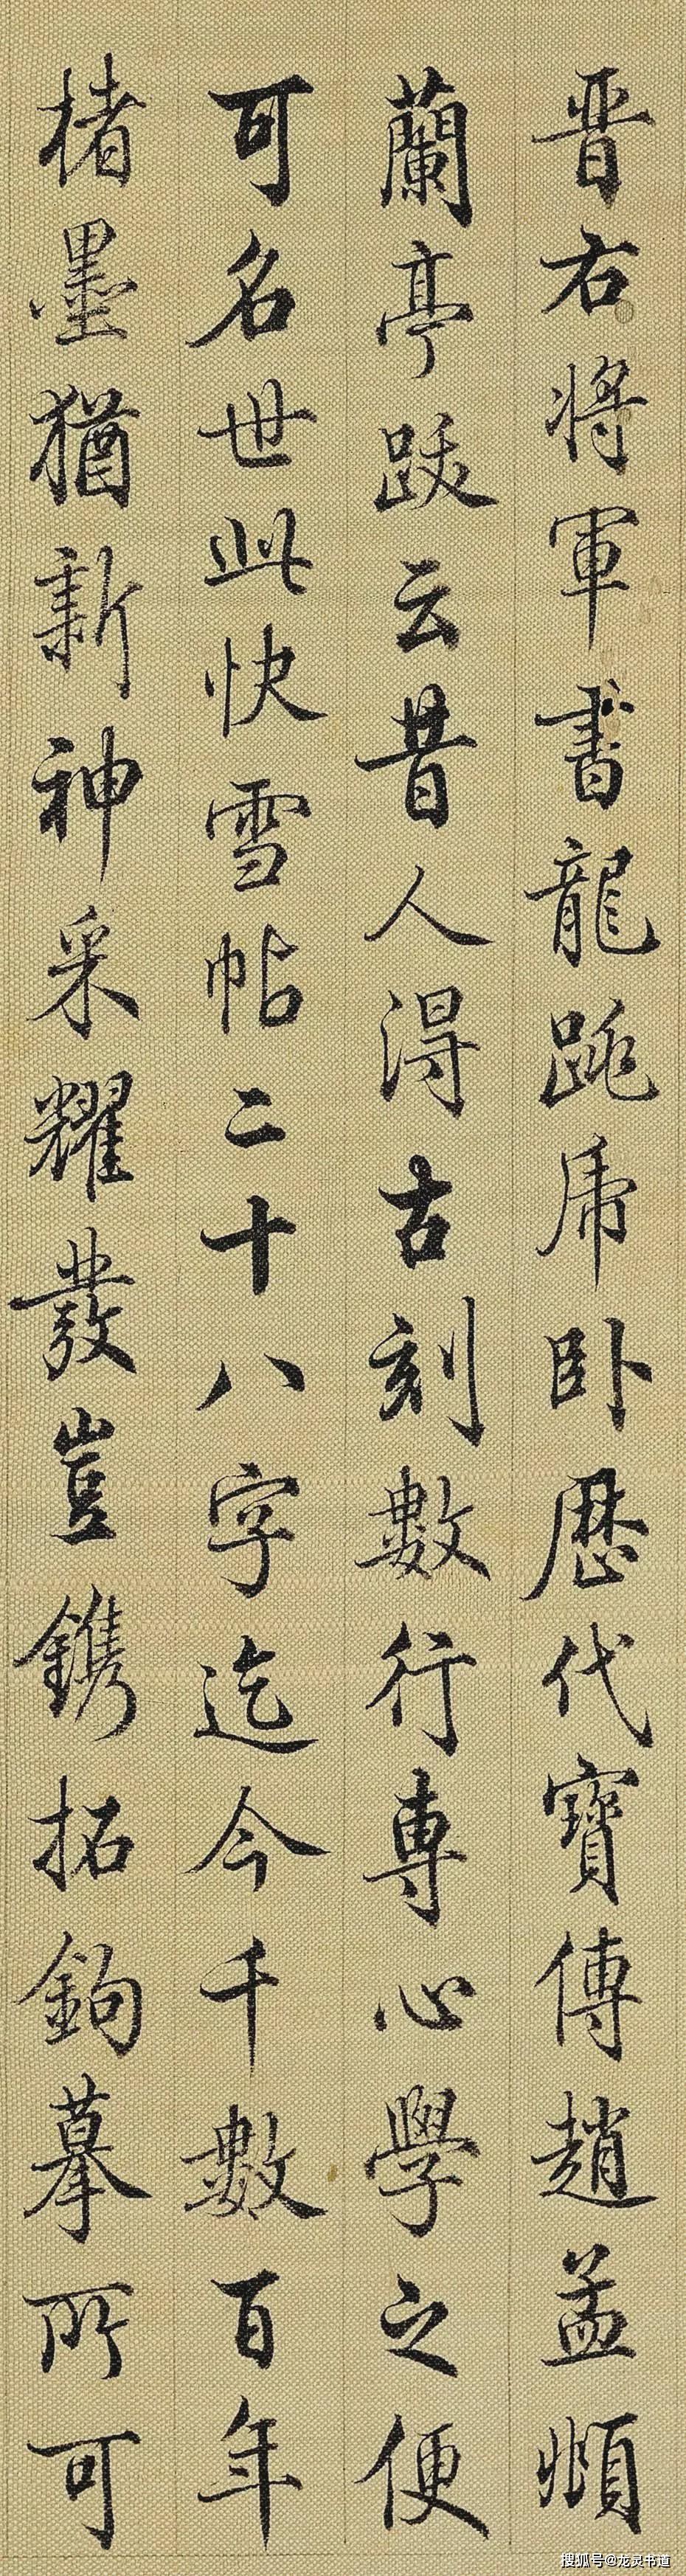 晋右将軍書龍跳虎卧歴代寳傳趙孟頫
蘭亭跋云昔人得古刻數行專心學之便
可名世此快雪帖二十八字迄今千數百年
楮墨猶新神采耀發豈鐫拓鉤摹所可
搜狐号@龙灵书道